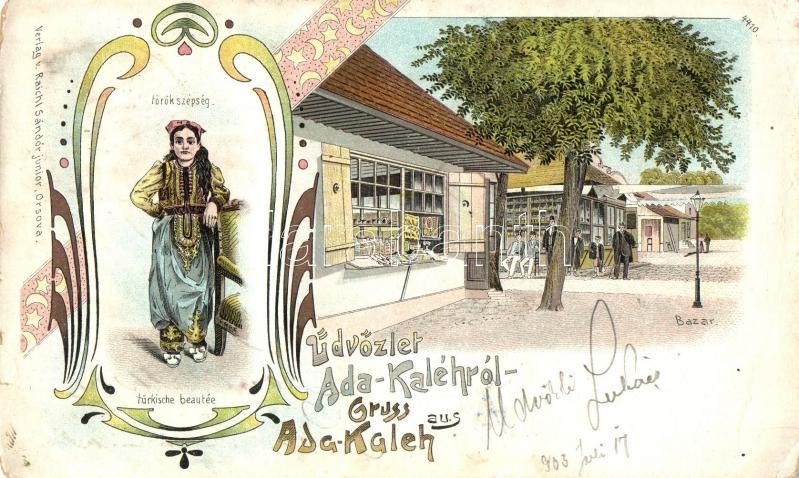 4410.
Verlag v. Raichl Sándor junior, Orsova.
török szépség.
türkische beautée
Bazar.
Üdvözlet
Ada-Kaléhról-
Gruss aus
Ada-Kaleh
Üdvözli Lukács
903 Juli 17